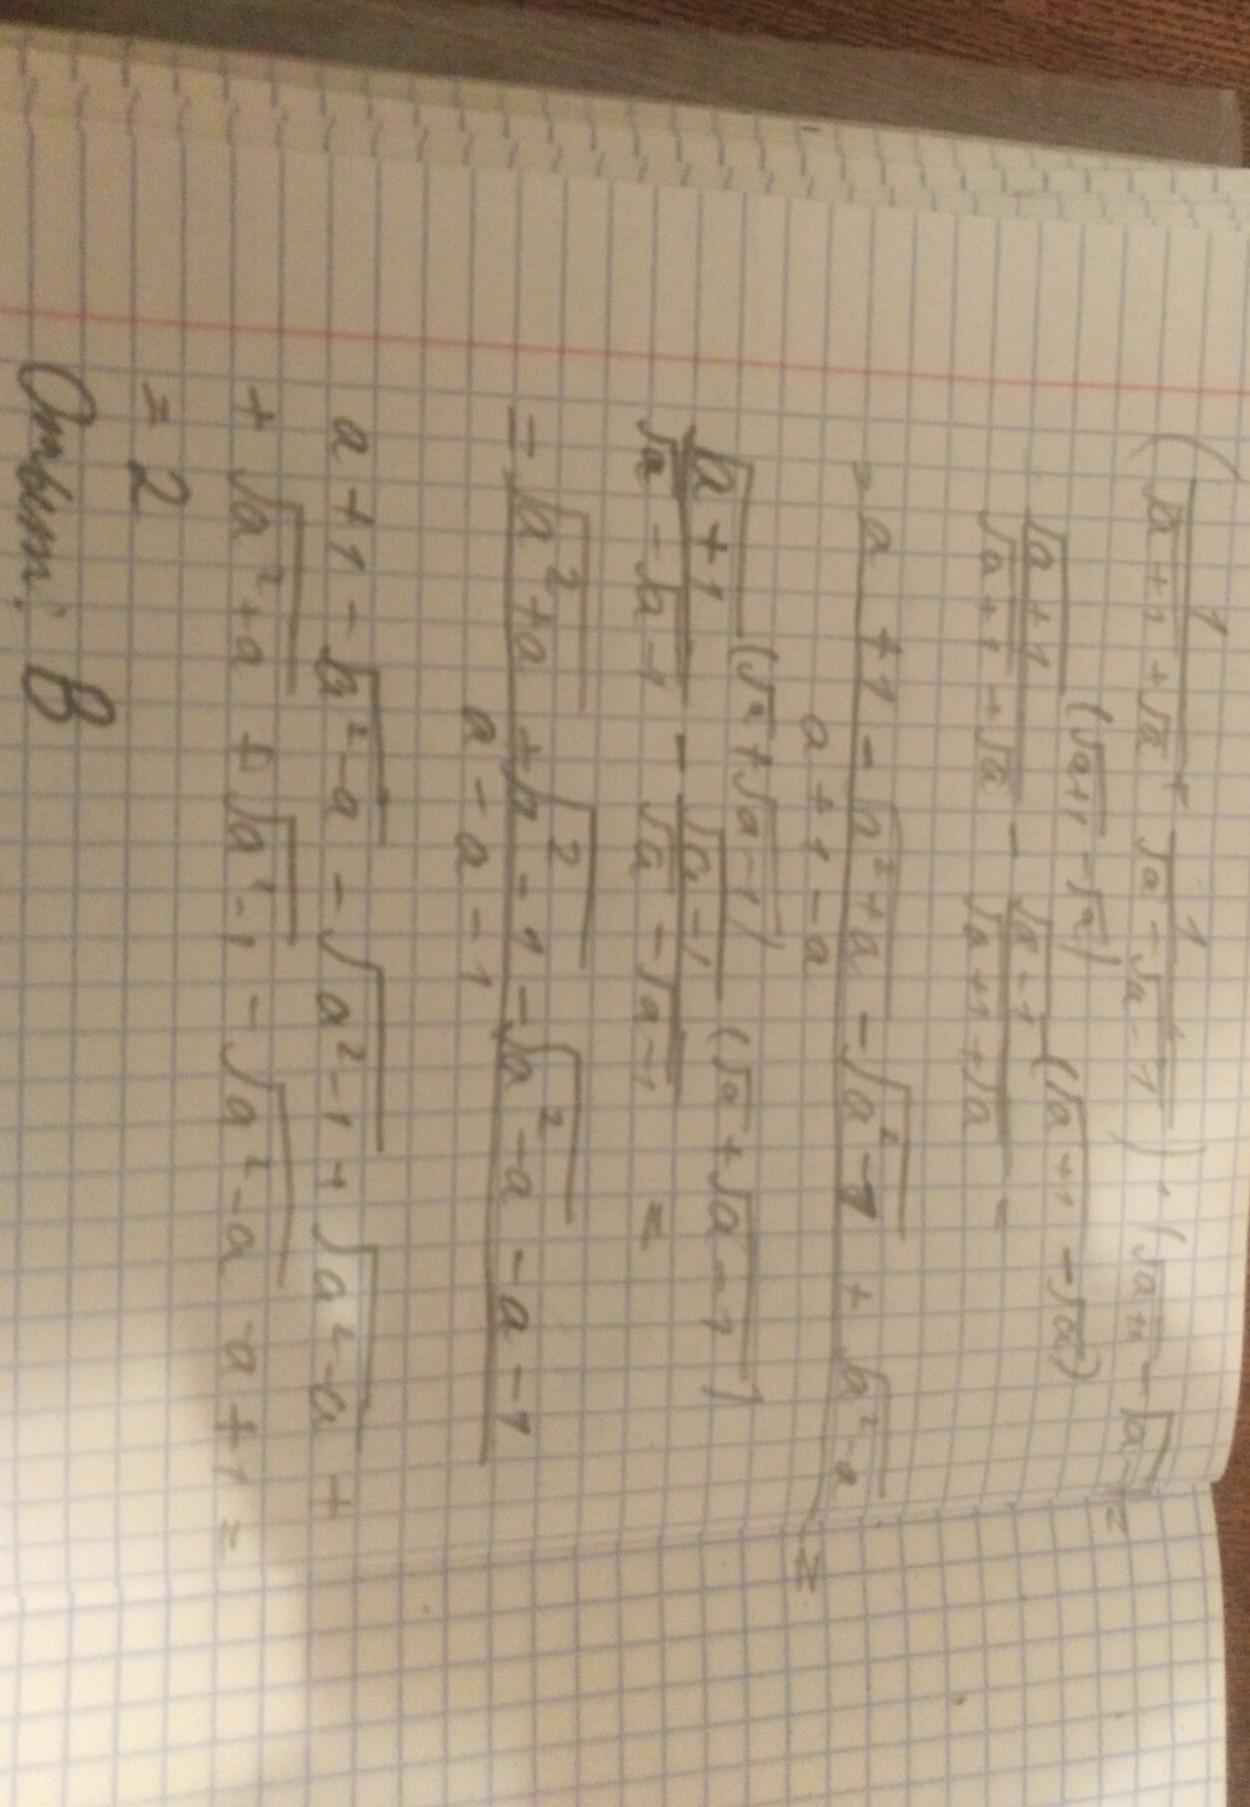 (1/(√(a+1)+√a) + 1/(√a-√(a-1))) · (√(a+1) - √(a-1)) =
√(a+1)(√(a+1)-√a)/(√(a+1)+√a) - √(a-1)(√(a+1)-√a)/(√(a+1)+√a) -
= (a+1-√(a²+a)-√(a²-1)+√(a²-a))/(a+1-a) =
√(a+1)(√a+√(a-1))/(√a-√(a-1)) - √(a-1)(√a+√(a-1))/(√a-√(a-1)) =
= (√(a²+a)+√(a²-1)-√(a²-a)-a-1)/(a-a-1)
a+1-√(a²-a)-√(a²-1)+√(a²-a)+
+√(a²+a)+√(a²-1)-√(a²-a)-a+1=
= 2
Ответ: В